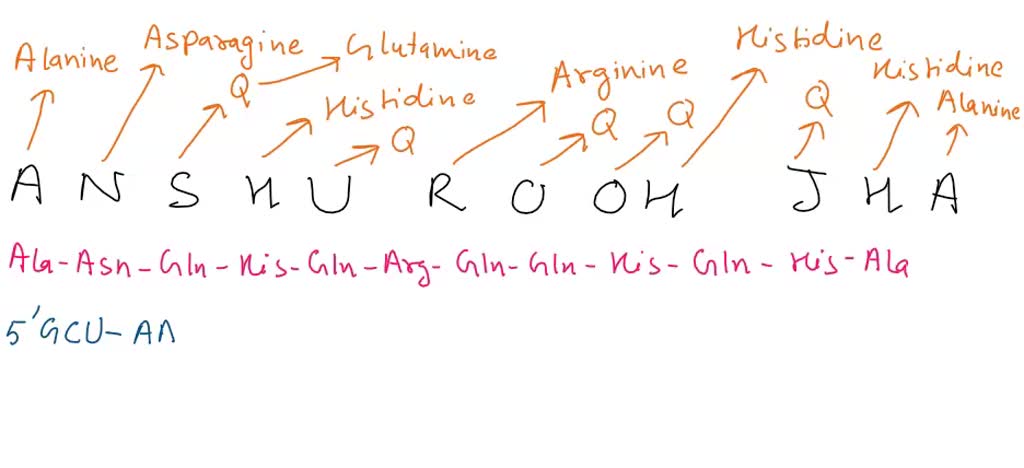 Alanine Asparagine Glutamine Histidine
Q Histidine Arginine Q Histidine
Q Q Q Alanine
A N S H U R O O H J H A
Ala-Asn-Gln-His-Gln-Arg-Gln-Gln-His-Gln-His-Ala
5'GCU-AA